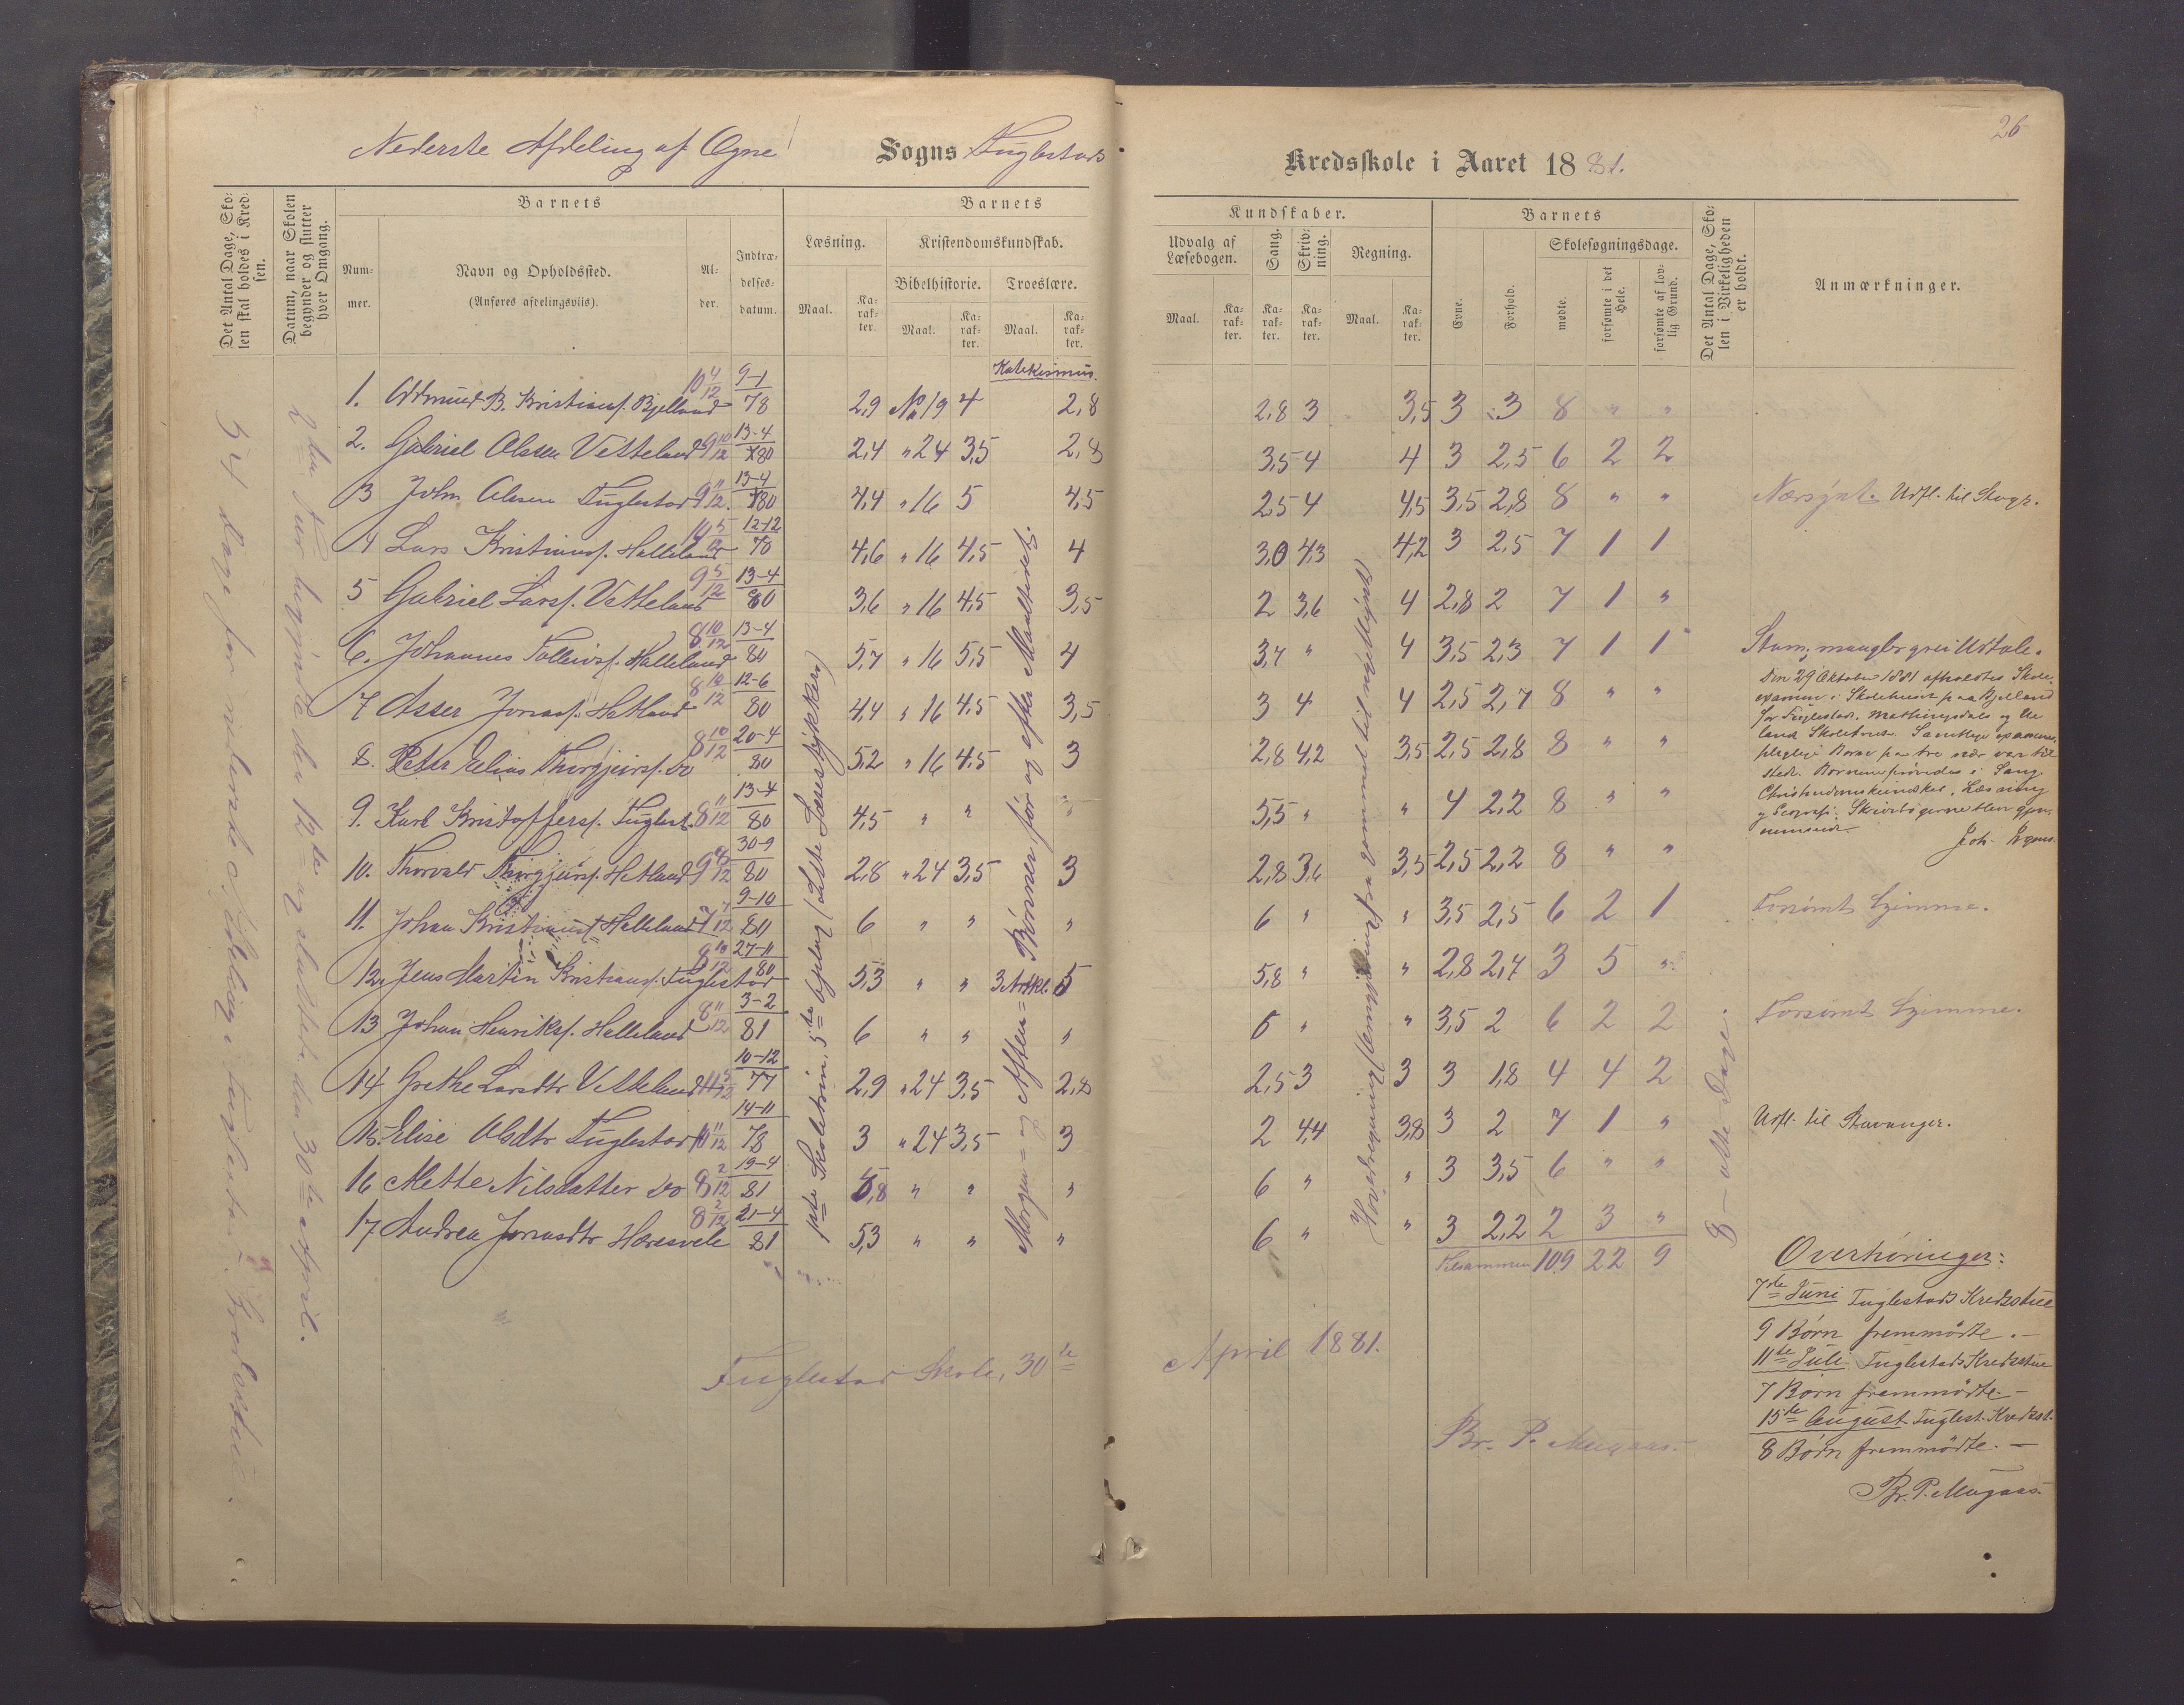 26
Nederste Afdeling af Ogne Sogns Fuglestad Kredsskole i Aaret 1881.
Det Antal Dage, Skolen skal holdes i Kredsen.
Datum, naar Skolen begynder og slutter hver Omgang.
Barnets
Nummer.
Navn og Opholdssted.
(Anføres afdelingsviis).
Alder.
Indtrædelsesdatum.
Barnets Kundskaber.
Læsning.
Kristendomskundskab.
Bibelhistorie. Troeslære.
Maal. Karakter. Maal. Karakter. Maal. Karakter.
Udvalg af Læsebogen.
Sang.
Skrivning.
Regning.
Maal. Karakter. Karakter. Karakter. Maal. Karakter.
Barnets
Evne.
Forhold.
Skolesøgningsdage.
mødte.
forsømte i det Hele.
forsømte af lovlig Grund.
Det Antal Dage, Skolen i Virkeligheden er holdt.
Anmærkninger.
Katekismus.
1. Oddmund B. Kristians. Bjelland 10 4/12 9-1 78 2,9 No 19 4 2,8 2,8 3 3,5 3 3 8 " "
2. Gabriel Olsen Vetteland 9 10/12 13-4 80 2,4 " 24 3,5 2,8 3,5 4 4 3 2,5 6 2 2
3 John Olsen Fuglestad 9 11/12 13-4 80 4,4 " 16 5 4,5 2,5 4 4,5 3,5 2,8 8 " " Nærsynt. Udfl. til Stvgr.
4 Lars Kristians. Halleland 10 5/12 12-12 78 4,6 " 16 4,5 4 3,0 4,3 4,2 3 2,5 7 1 1
5 Gabriel Larss. Vetteland 9 5/12 13-4 80 3,6 " 16 4,5 3,5 2 3,6 4 2,8 2 7 1 "
6. Johannes Tolleivs. Halleland 8 10/12 13-4 80 5,7 " 16 5,5 4 3,7 " 4 3,5 2,3 7 1 1 Stam, mangler grei Udtale.
7 Asser Jonass. Hetland 8 10/12 12-6 80 4,4 " 16 4,5 3,5 3 4 4 2,5 2,7 8 " "
8. Peter Elias Thorgjeirs. Do 8 10/12 20-4 80 5,2 " 16 4,5 3 2,8 4,2 3,5 2,5 2,8 8 " "
9. Karl Kristoffers. Fuglest. 8 11/12 13-4 80 4,5 " " " 5,5 " " 4 2,2 8 " "
10. Thorvald Thorgjeirs. Hetland 9 8/12 30-9 80 2,8 " 24 3,5 3 2,8 3,6 3,5 2,5 2,2 8 " "
11. Johan Kristians. Halleland 7 7/12 9-10 80 6 " " " 6 " " 3,5 2,5 6 2 1 Forsømt Hjemme.
12. Jens Martin Kristians. Fuglestad 8 10/12 27-11 80 5,3 " " 3 Artkl. 5 5,8 " " 2,8 2,4 3 5 "
13 Johan Henriks. Halleland 8 11/12 3-2 81 6 " " " 6 " " 3,5 2 6 2 2 Forsømt Hjemme.
14 Grethe Larsdtr Vetteland 11 5/12 10-12 77 2,9 " 24 3,5 2,8 2,5 3 3 3 1,8 4 4 2
15. Elise Olsdtr Fuglestad 10 11/12 14-11 78 3 " 24 3,5 3 2 4,4 3,8 3 2 7 1 " Udfl. til Stavanger.
16 Mette Nilsdatter Do 8 2/12 19-4 81 5,8 " " " 6 " " 3 3,5 6 " "
17 Andrea Jonasdtr Haresvele 8 2/12 21-4 81 5,3 " " " 6 " " 3 2,2 2 3 "
Tilsammen 109 22 9
54 dage for nederste Afdeling i Fuglestad Kredsstue.
2den Tur begyndte den 12te og sluttede den 30te April.
1ste Skoletrin, 5te Oplag (Lette Læsestykker)
Morgen= og Aften= Bönner för og efter Maaltidet.
8 – otte Dage.
Den 29 Oktober 1881 afholdtes Skole
examen i Skolehuset paa Bjelland
for Fuglestad, Mattingsdals og Ue
land Skolekreds. Samtlige examens
pligtige Børn paa tre nær var til
stede. Børnene prövedes i Sang,
Christendomskundskab, Læsning
og Geografi. Skrivebögerne blev gjen
nemseede.
Fuglestad Skole, 30te April 1881.
Br. P. Mugaas.
Overhöringer:
7de Juni Fuglestads Kredsstue
9 Börn fremmödte. –
11te Juli Fuglestads Kredsstue
7 Börn fremmödte. –
15de August Fuglest. Kredsst.
8 Börn fremmödte. –
Br. P. Mugaas.